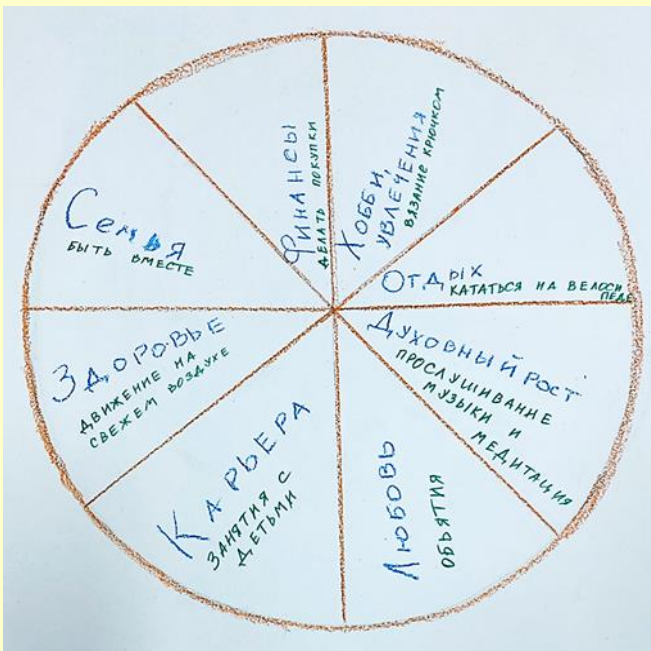 Семья
БЫТЬ ВМЕСТЕ
ФИНАНСЫ
ДЕЛАТЬ ПОКУПКИ
ХОББИ,
УВЛЕЧЕНИЯ
ВЯЗАНИЕ КРЮЧКОМ
ОТДЫХ
КАТАТЬСЯ НА ВЕЛОСИ
ПЕДЕ
ДУХОВНЫЙ РОСТ
ПРОСЛУШИВАНИЕ
МУЗЫКИ И
МЕДИТАЦИЯ
ЛЮБОВЬ
ОБЪЯТИЯ
КАРЬЕРА
ЗАНЯТИЯ С
ДЕТЬМИ
ЗДОРОВЬЕ
ДВИЖЕНИЕ НА
СВЕЖЕМ ВОЗДУХЕ